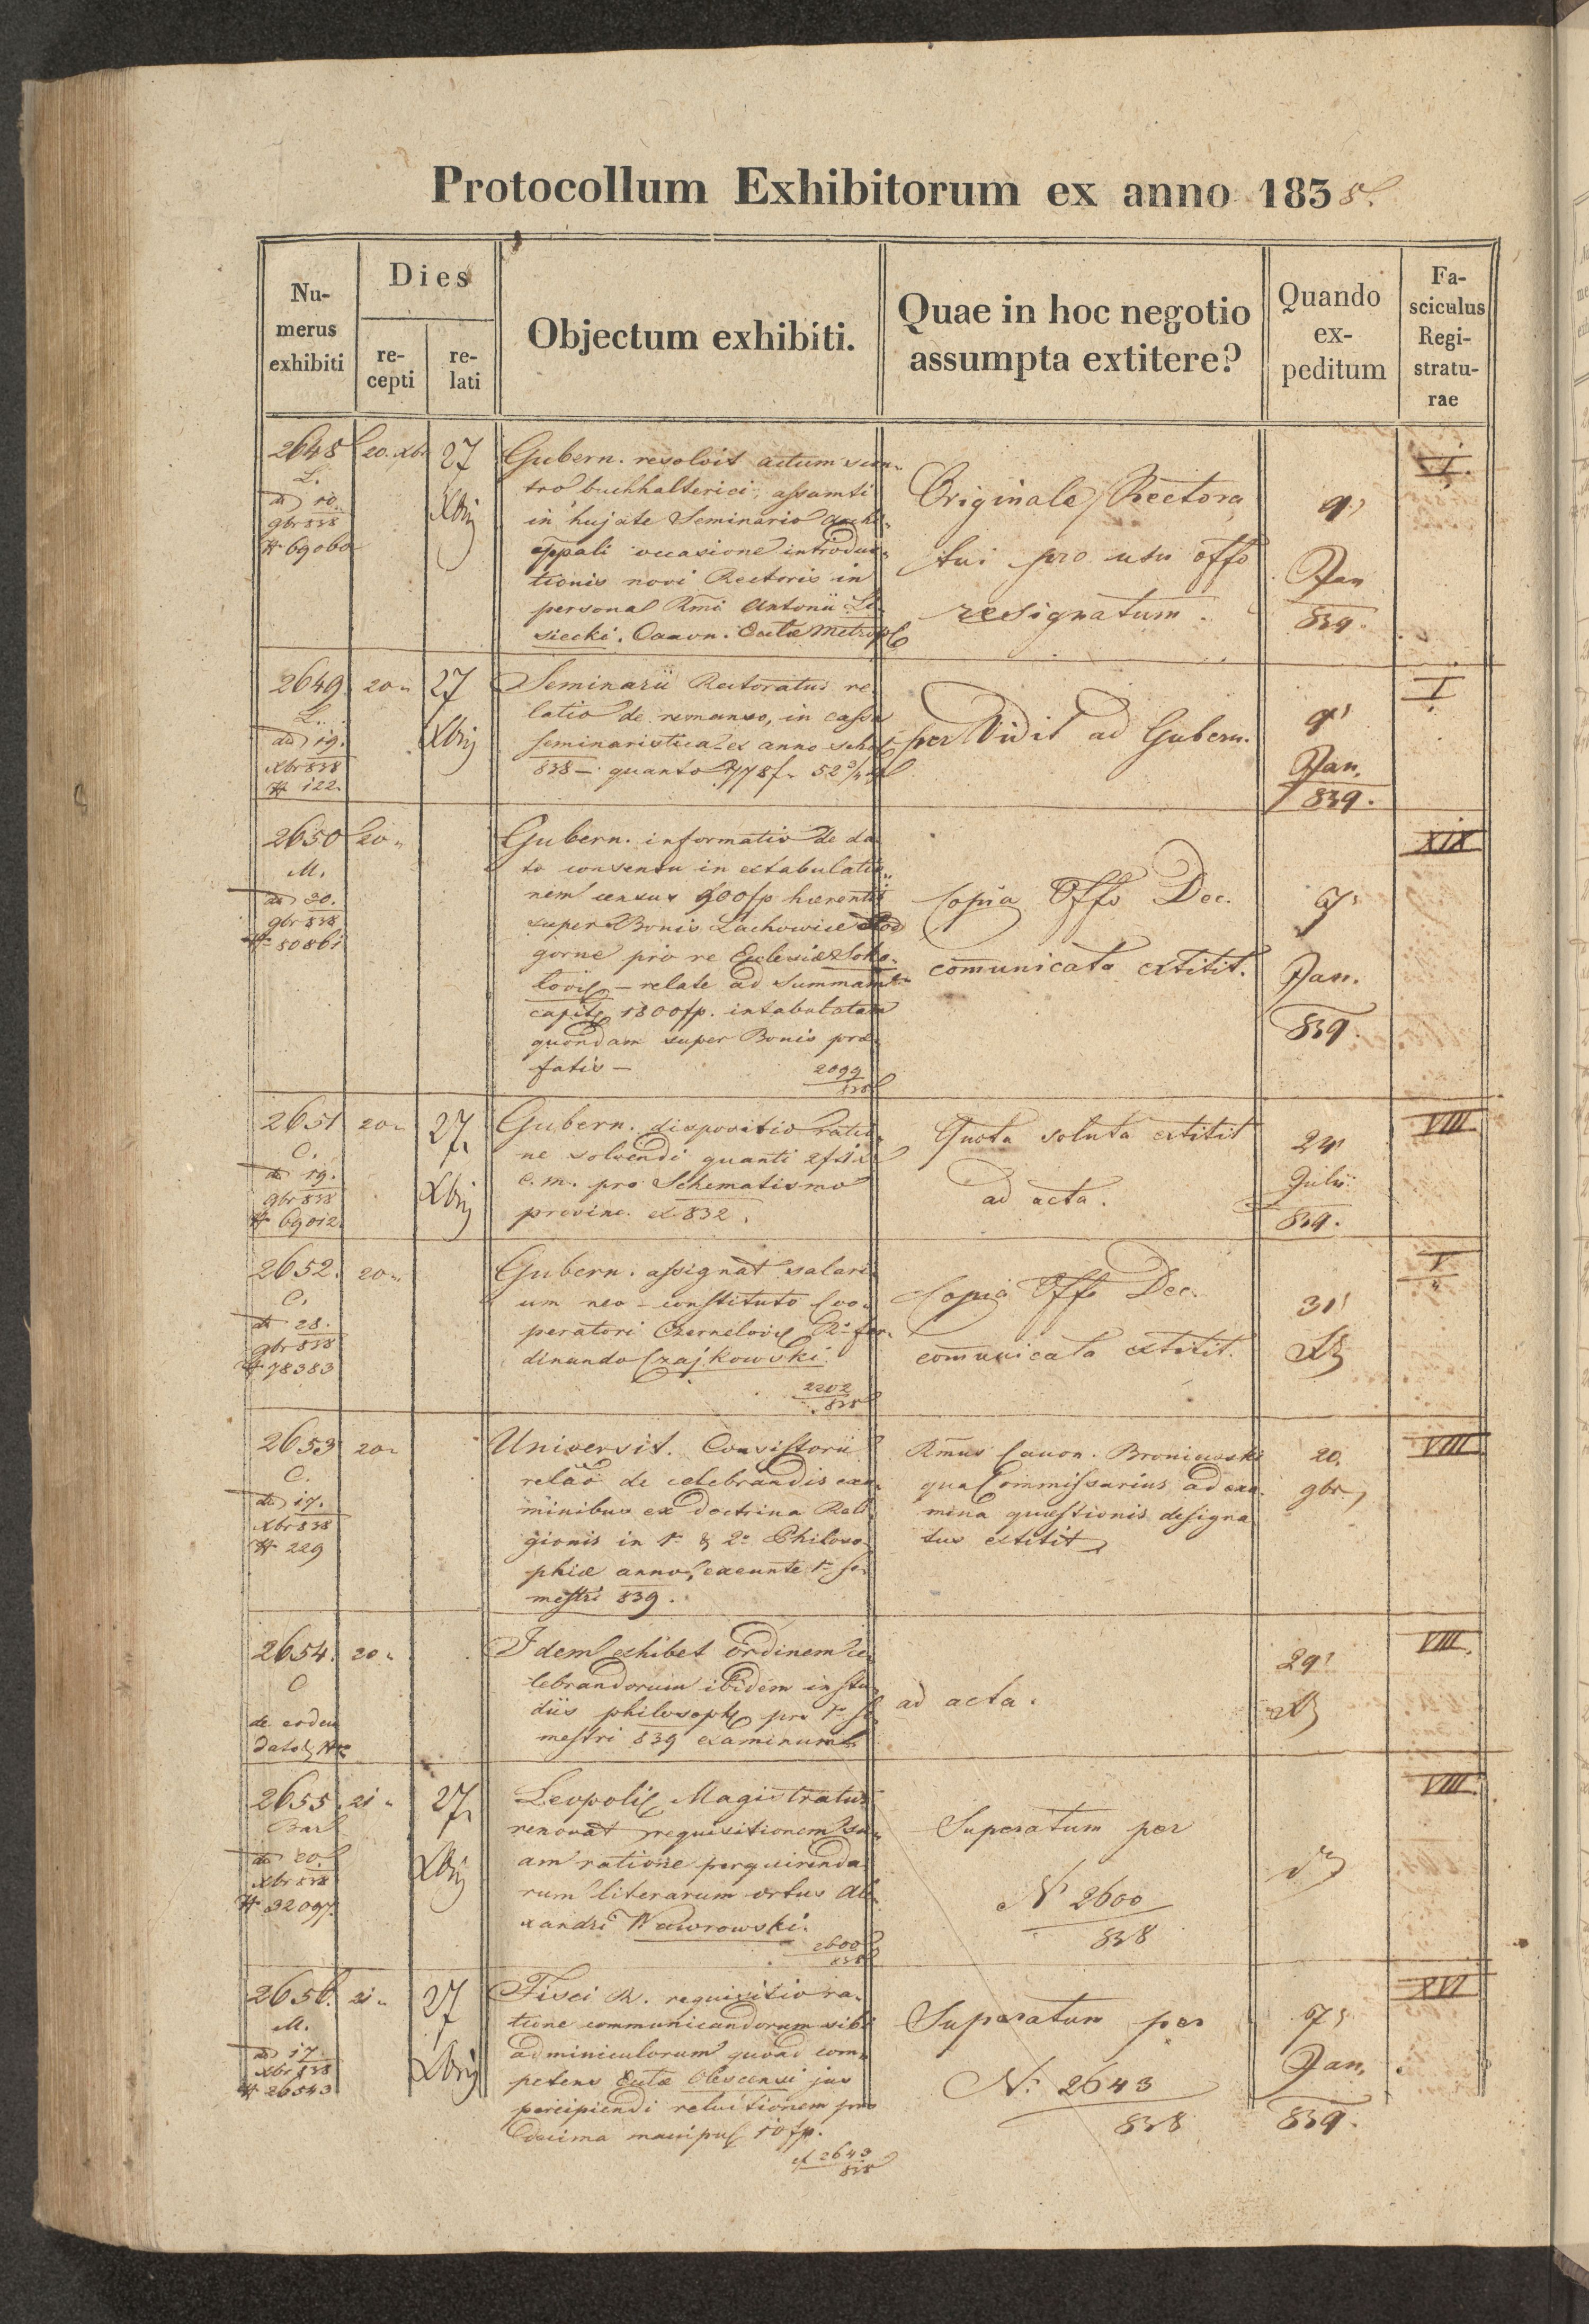 Protocollum Exhibitorum ex anno 1838.
Nu-
merus
exhibiti
Dies
re-
cepti
re-
lati
Objectum exhibiti.
Quae in hoc negotio
assumpta extitere?
Quando
ex-
peditum
Fa-
sciculus
Regi-
stratu-
rae
2648
L.
dd 10.
9br 838
# 69060
20. Xbr
27
Xbrij
Gubern. resolvit actum scon-
tro buchhalterici, assumti
in hujate Seminario
occasione introduc-
tionis novi Rectoris in
persona Rmi Antonii Li-
siecki. Canon. Eccl̄æ Metropol
Originale Rectora
tui pro usu offō
resignatum.
9
Jan
839.
I.
2649.
L.
dd 19.
Xbr 838
# 122.
20.
27
Xbrij
Seminarii Rectoratus re-
latio de remanso, in cassa
seminaristica ex anno schol
838 - quanto
per Vidit ad Gubern.
9
Jan.
839.
I
2650
M.
dd 20.
9br 838
# 80861
20.
Gubern. informatio de da
to consensu in extabulatio-
nem census 900 fp hærentis
super Bonis Lachowice Pod
gorne pro re Ecclesiæ Soko-
lovien - relate ad Summam
capit 1800 fp. intabulatam
quondam super Bonis præ-
fatis -
2099
838
Copia Offō Dec.
com̄unicata extitit.
7
Jan.
839.
XIX
2651
C.
dd 19.
9br 838
# 69012.
20.
27.
Xbrij
Gubern. dispositio ratio-
ne solvendi quanti
c. m. pro Schematismo
provinc. ex 832.
Quota soluta extitit
ad acta.
24
Julii
839.
VIII
2652.
C.
dd 28.
9br 838
# 78383
20.
Gubern. assignat salari-
um neo-constituto Coo-
peratori Czernelovien Fer-
dinando Czajkowski.
2202
838
Copia Offō Dec.
com̄unicata extitit.
31
Xb
V
2653
C.
dd 17.
Xbr 838
# 229
20.
Universit. Consistorii
relāo de celebrandis exa-
minibus ex doctrina Reli
gionis in 1º & 2º Philoso-
phiæ anno, exeunte 1º se-
mestri 839.
Rm̄us Canon. Broniewski
qua Commissarius ad exa-
mina quæstionis designa
tus extitit
20.
9br.
VIII
2654.
C
de eodem
dato &
20.
Idem exhibet ordinem ce-
lebrandorum ibidem in stu
diis philosoph pro 1º se
mestri 839 examinum.
ad acta.
29
Xb
VIII.
2655
dd 20.
Xbr 838
# 32097.
21.
27.
Xbrij
Leopolien Magistratus
renovat requisitionem su-
am ratione perquirenda
rum literarum ortus Ale
xandri Nawrowski.
2600
838
Superatum per
N 2600
838
VIII.
2656.
M.
dd 17.
Xbr 838
# 26543
21.
27
Xbrij
Fisci R. requisitio ra-
tione communicandorum sibi
adminiculorum quoad com-
petens Eccl̄æ Olescensi jus
percipiendi reluitionem pro
decima manipul 10 fp.
2643
838
Superatum per
N. 2643
838
7
Jan.
839.
XVI